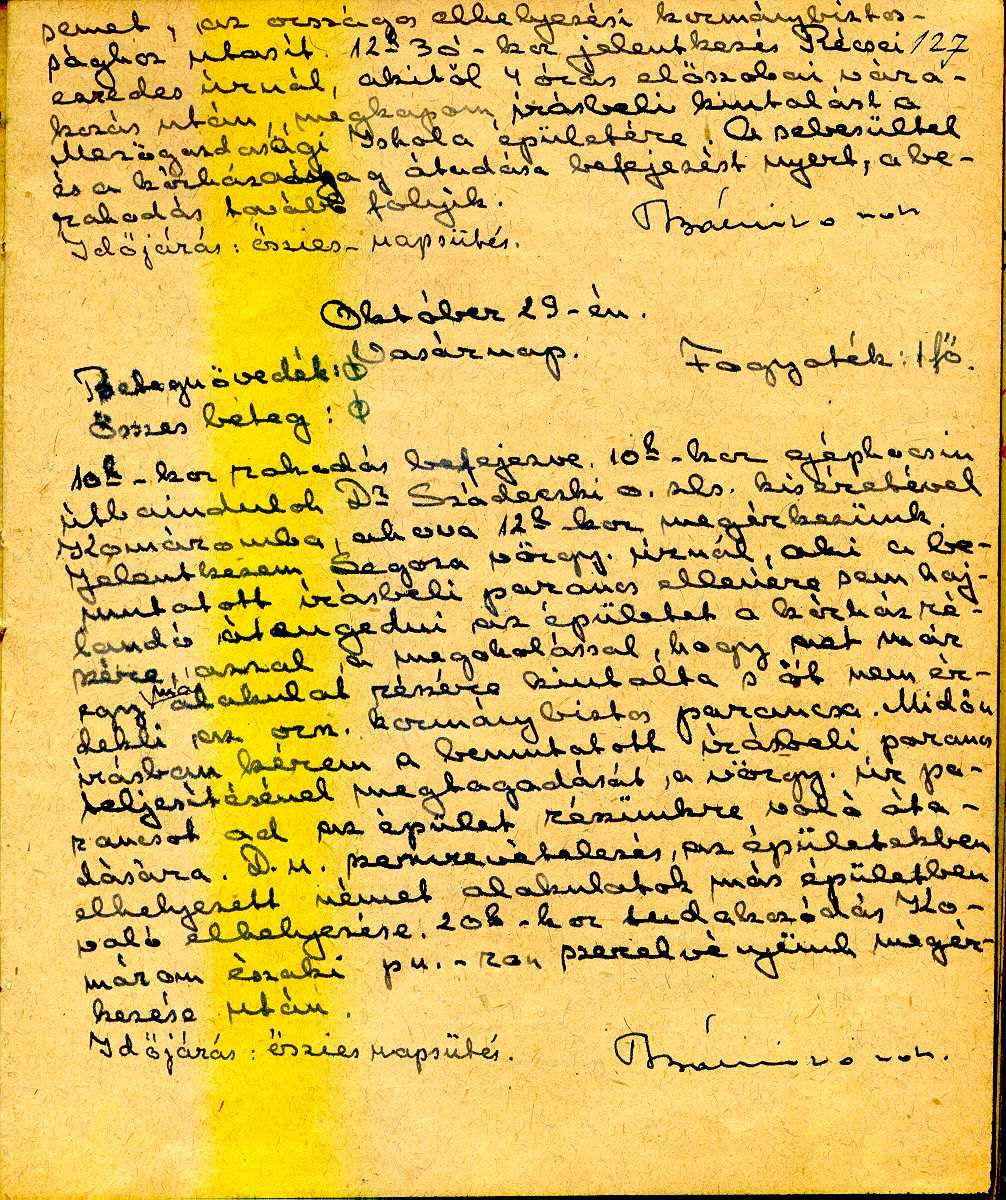 semet, az országos elhelyezési kormánybiztos-
sághoz utasít. 12h 30-kor jelentkezés Récsei 127
ezredes úrnál, akitől 4 órás előszobai vára-
kozás után, megkapom írásbeli kiutalást a
Mezőgazdasági Iskola épületére. A sebesültek
és a kórházanyag átadása befejezést nyert, a be-
rakodás tovább folyik.
Időjárás: őszies-napsütés.
Október 29-én.
Vasárnap.
Fogyaték: 1 fő.
Betegnövedék: ϕ
Összes beteg: ϕ
10h-kor rakodás befejezve. 10h-kor gépkocsin
útbaindulok Dr Szádeczki o. zls. kíséretével
Komáromba, ahova 12h-kor megérkezünk.
Jelentkezem vörgy. úrnál, aki a be-
mutatott írásbeli parancs ellenére sem haj-
landó átengedni az épületet a kórház ré-
szére, azzal a megokolással, hogy ezt már
egy más alakulat részére kiutalta s őt nem ér-
dekli az orsz. kormánybiztos parancsa. Midőn
írásban kérem a bemutatott írásbeli parancs
teljesítésének megtagadását, a vörgy. úr pa-
rancsot ad az épület részünkre való áta-
dására. D.u. szemrevételezés, az épületekben
elhelyezett német alakulatok más épületben
való elhelyezése. 20h-kor tudakozódás Ko-
márom északi pu.-ron szerelvényünk megér-
kezése után.
Időjárás: őszies napsütés.